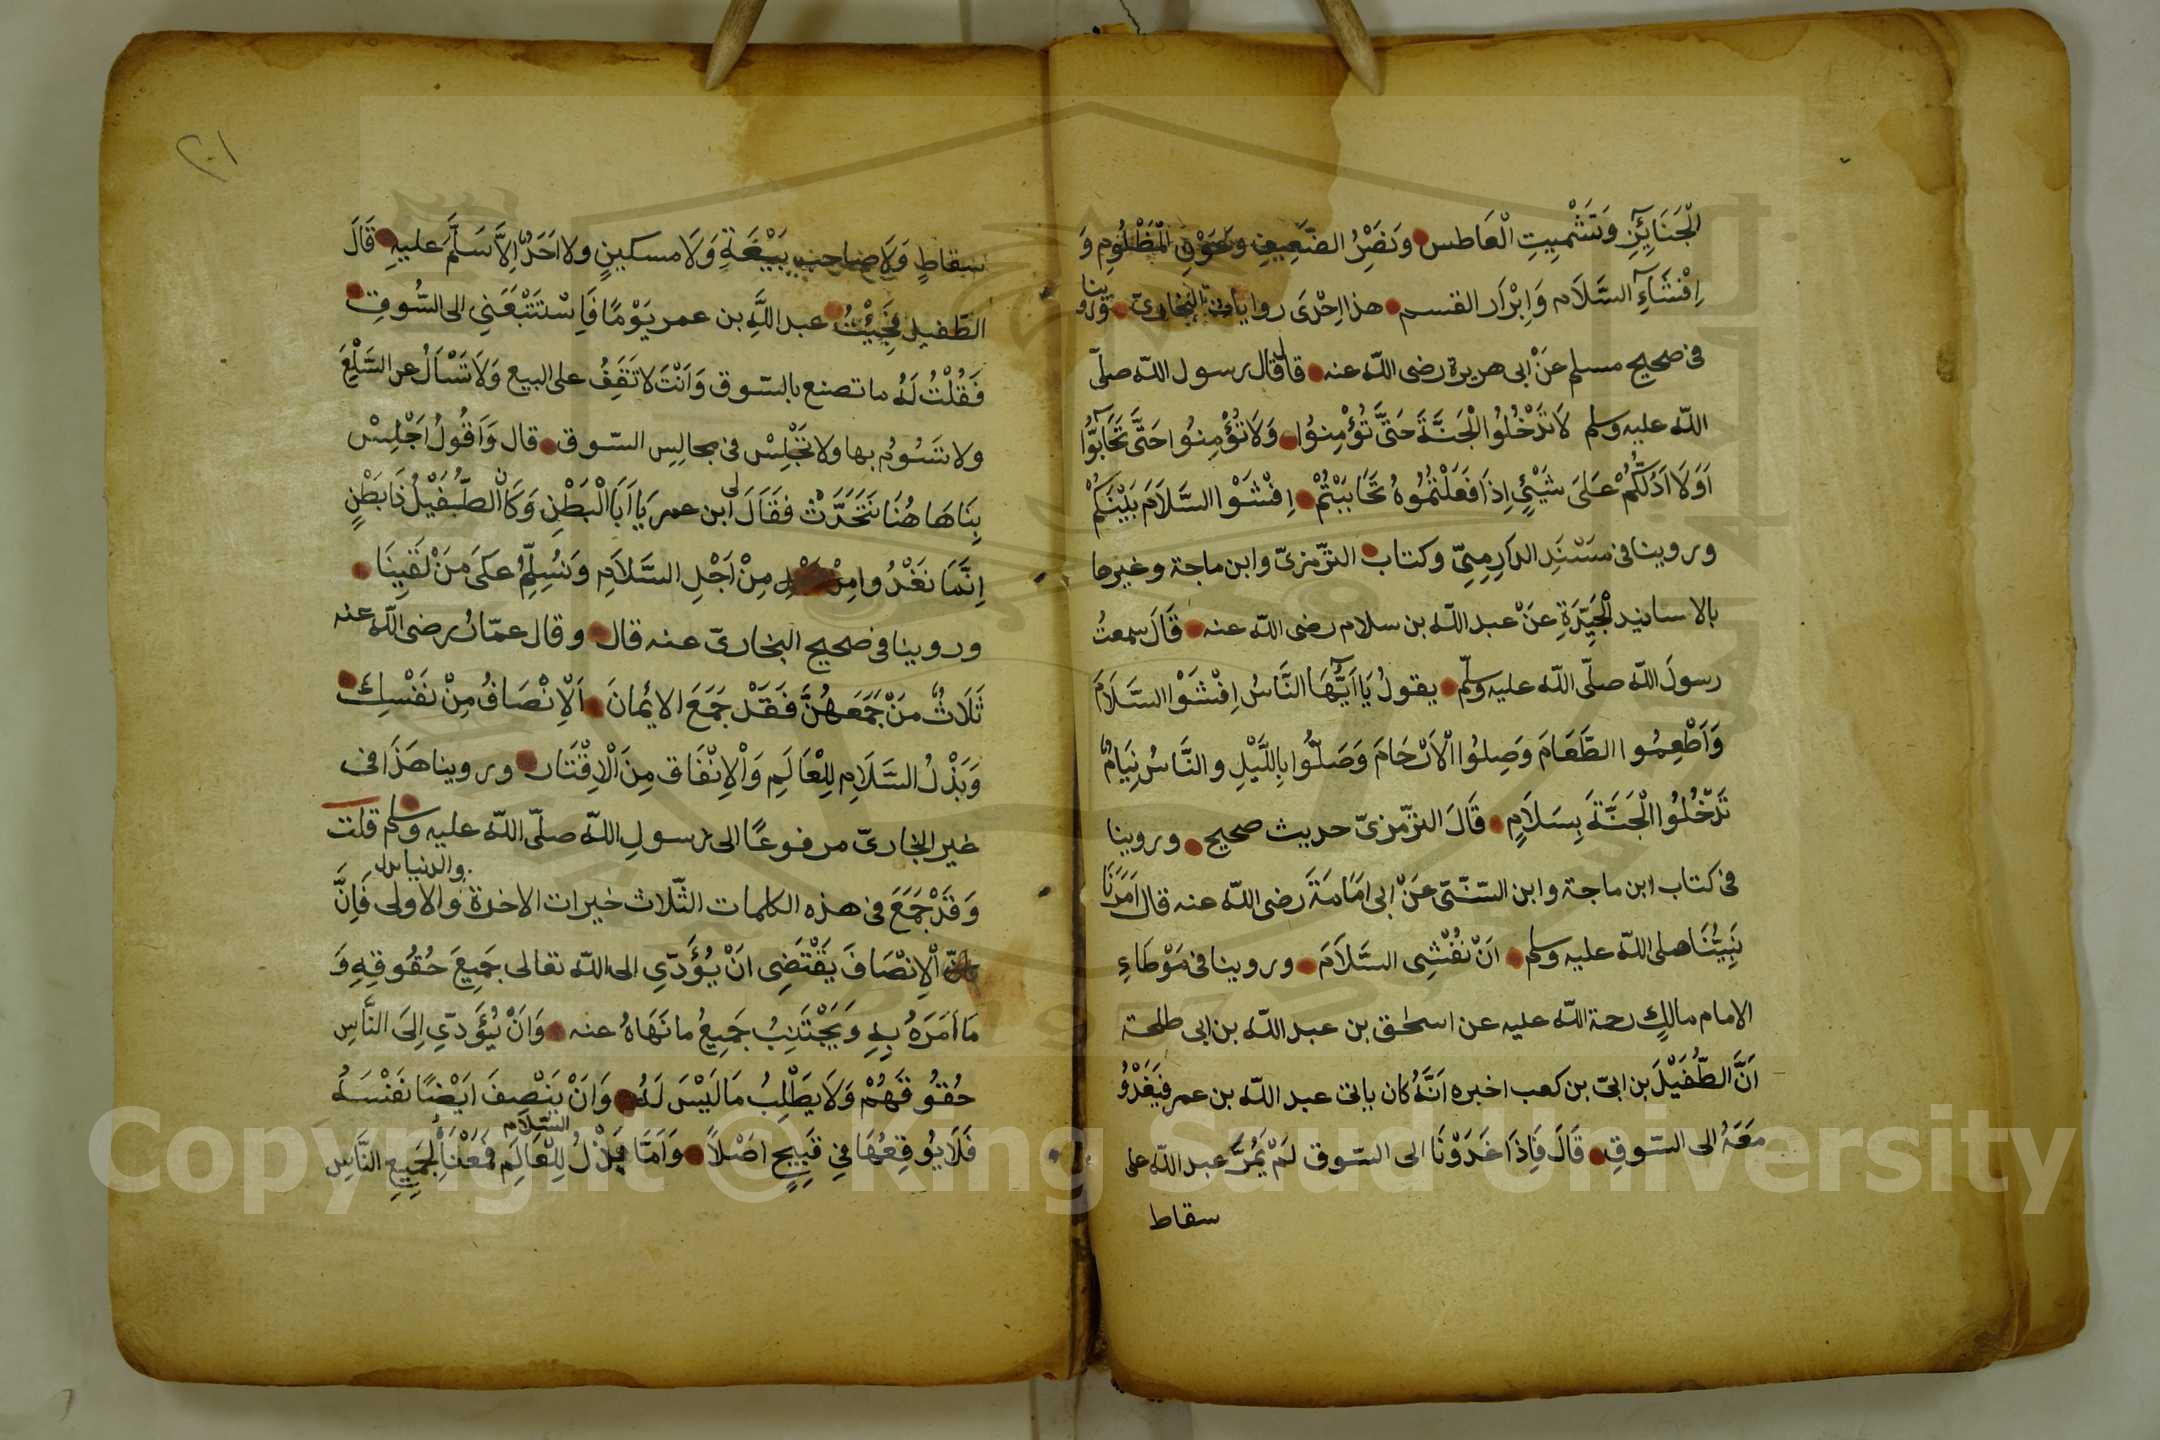 الْجَنَائِزِ وَتَشْمِيتِ الْعَاطس وَنَصْرِ الضَّعِيفِ وَعَوْنِ الْمَظْلُومِ وَ
اِفْشَآءِ السَّلَام وَاِبْرَار القسم هذا اِحْدَى روايات البُخارىّ وروينا
فى صحيح مسلم عَنْ ابى هريرة رضى اللّه عنه قال قال رسول اللّه صلّى
اللّه عليه وسلم لَا تَدْخُلُوا الْجَنَّةَ حَتَّى تُؤْمِنُوا وَلَا تُؤْمِنُوا حَتَّى تَحَآبُّوا
اَوَلَا اَدُلُّكُمْ عَلىَ شَيْئٍ اِذَا فَعَلْتُمُوهُ تَحَابَبْتُمْ اِفْشَوْا السَّلَامَ بَيْنَكُمْ
وروينا فى مسْنَدِ الدَارِمِىّ وكتاب التّرْمزىّ وابن ماجة وغيرها
بالاسانيد الْجَيِّدَةِ عَنْ عبد اللّه بن سلام رضى اللّه عنه قَالَ سمعتُ
رسولَ اللّه صلّى اللّه عليه وسلّم يقولُ يَا اَيُّهَا النَّاسُ اِفْشَوْا السَّلَامَ
وَاَطْعِمُوا الطَّعَامَ وَصِلُوا الْاَرْحَامَ وَصَلُّوا بِاللَّيْلِ والنَّاسُ نِيَامٌ
تَدْخُلُوا الْجَنَّةَ بِسَلَامٍ قَالَ التّرْمزىّ حديث صحيح وروينا
فى كتاب ابن ماجة وابن السّنّىّ عَنْ ابى اُمَامَةَ رضى اللّه عنه قال اَمَرَنَا
نَبِيُّنَا صلى اللّه عليه وسلم اَنْ نُفْشِى السَّلَامَ وروينا فى مَوْطَاءِ
الامام مالكٍ رحمة اللّه عليه عن اسحٰق بن عبد اللّه بن ابى طلحة
اَنَّ الطُّفَيْلَ بن ابىّ بن كعب اخبره اَنَّهُ كان ياتى عبد اللّه بن عمر فَيَغْدُوُ
مَعَهُ الى السّوقِ قَالَ فَاِذَا غَدَوْنَا الى السّوق لَمْ يَمُرَّ عبد اللّه على
سقاط
٢٠١
سقاطٍ وَلَا صاحب بَيْعَةٍ وَلَا مسكينٍ ولا اَحَدٌ اِلَّا سَلَّمَ عليهِ قَالَ
الطّفيل فَجِئْتُ عبد اللَّهِ بن عمر يَوْمًا فَاِسْتَتْبَعَنِى الى السُّوقِ
فَقُلْتُ لَهُ ما تصنع بالسّوق وَاَنْتَ لا تَقَفُ على البيع وَلَا تَسْاَلُ عن السَّلْعِ
ولا تَسُومُ بها ولا تَجْلِسْ فى مجالِسِ السّوق قال وَاَقُولُ اَجْلِسْ
بِنَا هَا هُنَا نَتَحَدَّثْ فقَالَ لى ابن عمر يَا اَبَا الْبَطْنِ وَكَانْ الطُّفَيْلُ ذَا بَطْنٍ
اِنَّمَا نَغْدُوا مِنْ اَجْلِ السَّلَامِ وَنُسَلِّمُ عَلىَ مَنْ لَقَيِنَا
وروينا فى صحيح البخارىّ عنه قال وقال عمّار رضى اللّه عنه
ثَلَاثٌ مَنْ جَمَعَهُنَّ فَقَدْ جَمَعَ الائمانَ اَلْاِنْصَافُ مِنْ نَفْسِكَ
وَبَذْلُ السَّلَامِ لِلْعَالَمِ وَالْاِنْفَاق مِنَ الْاِقْتَار وروينا هَذَا فى
غير البخارىّ مرفوعًا الى رسولِ اللّه صلّى اللّه عليه وسلم قلت
وَقَدْ جَمَعَ فى هذه الكلمات الثّلاث خيرات الاخرة والدنيا والاولى فَاِنَّ
الْاِنْصَافَ يَقْتَضِى اَنْ يُؤَدّىِ الى اللّه تعالى جَمِيعَ حُقُوقِهِ وَ
مَا اَمَرَهُ بِهِ وَيَجْتَنِبُ جَمِيعُ ما نَهَاهُ عنه وَاَنْ يُؤَدّىِ اِلىَ النَّاسِ
حُقُوقَهُمْ وَلَا يَطْلِبُ مَا لَيْسَ لَهُ وَاَنْ يَنْصِفَ اَيْضًا نَفْسَهُ
فَلَا يُوقِعُهَا فِى قَبِيحٍ اَصْلًا وَاَمَّا بَذْلُ السّلام لِلْعَالَمِ فَمَعْنَاُ لِجَمِيعِ النَّاسِ
Copyright © King Saud University